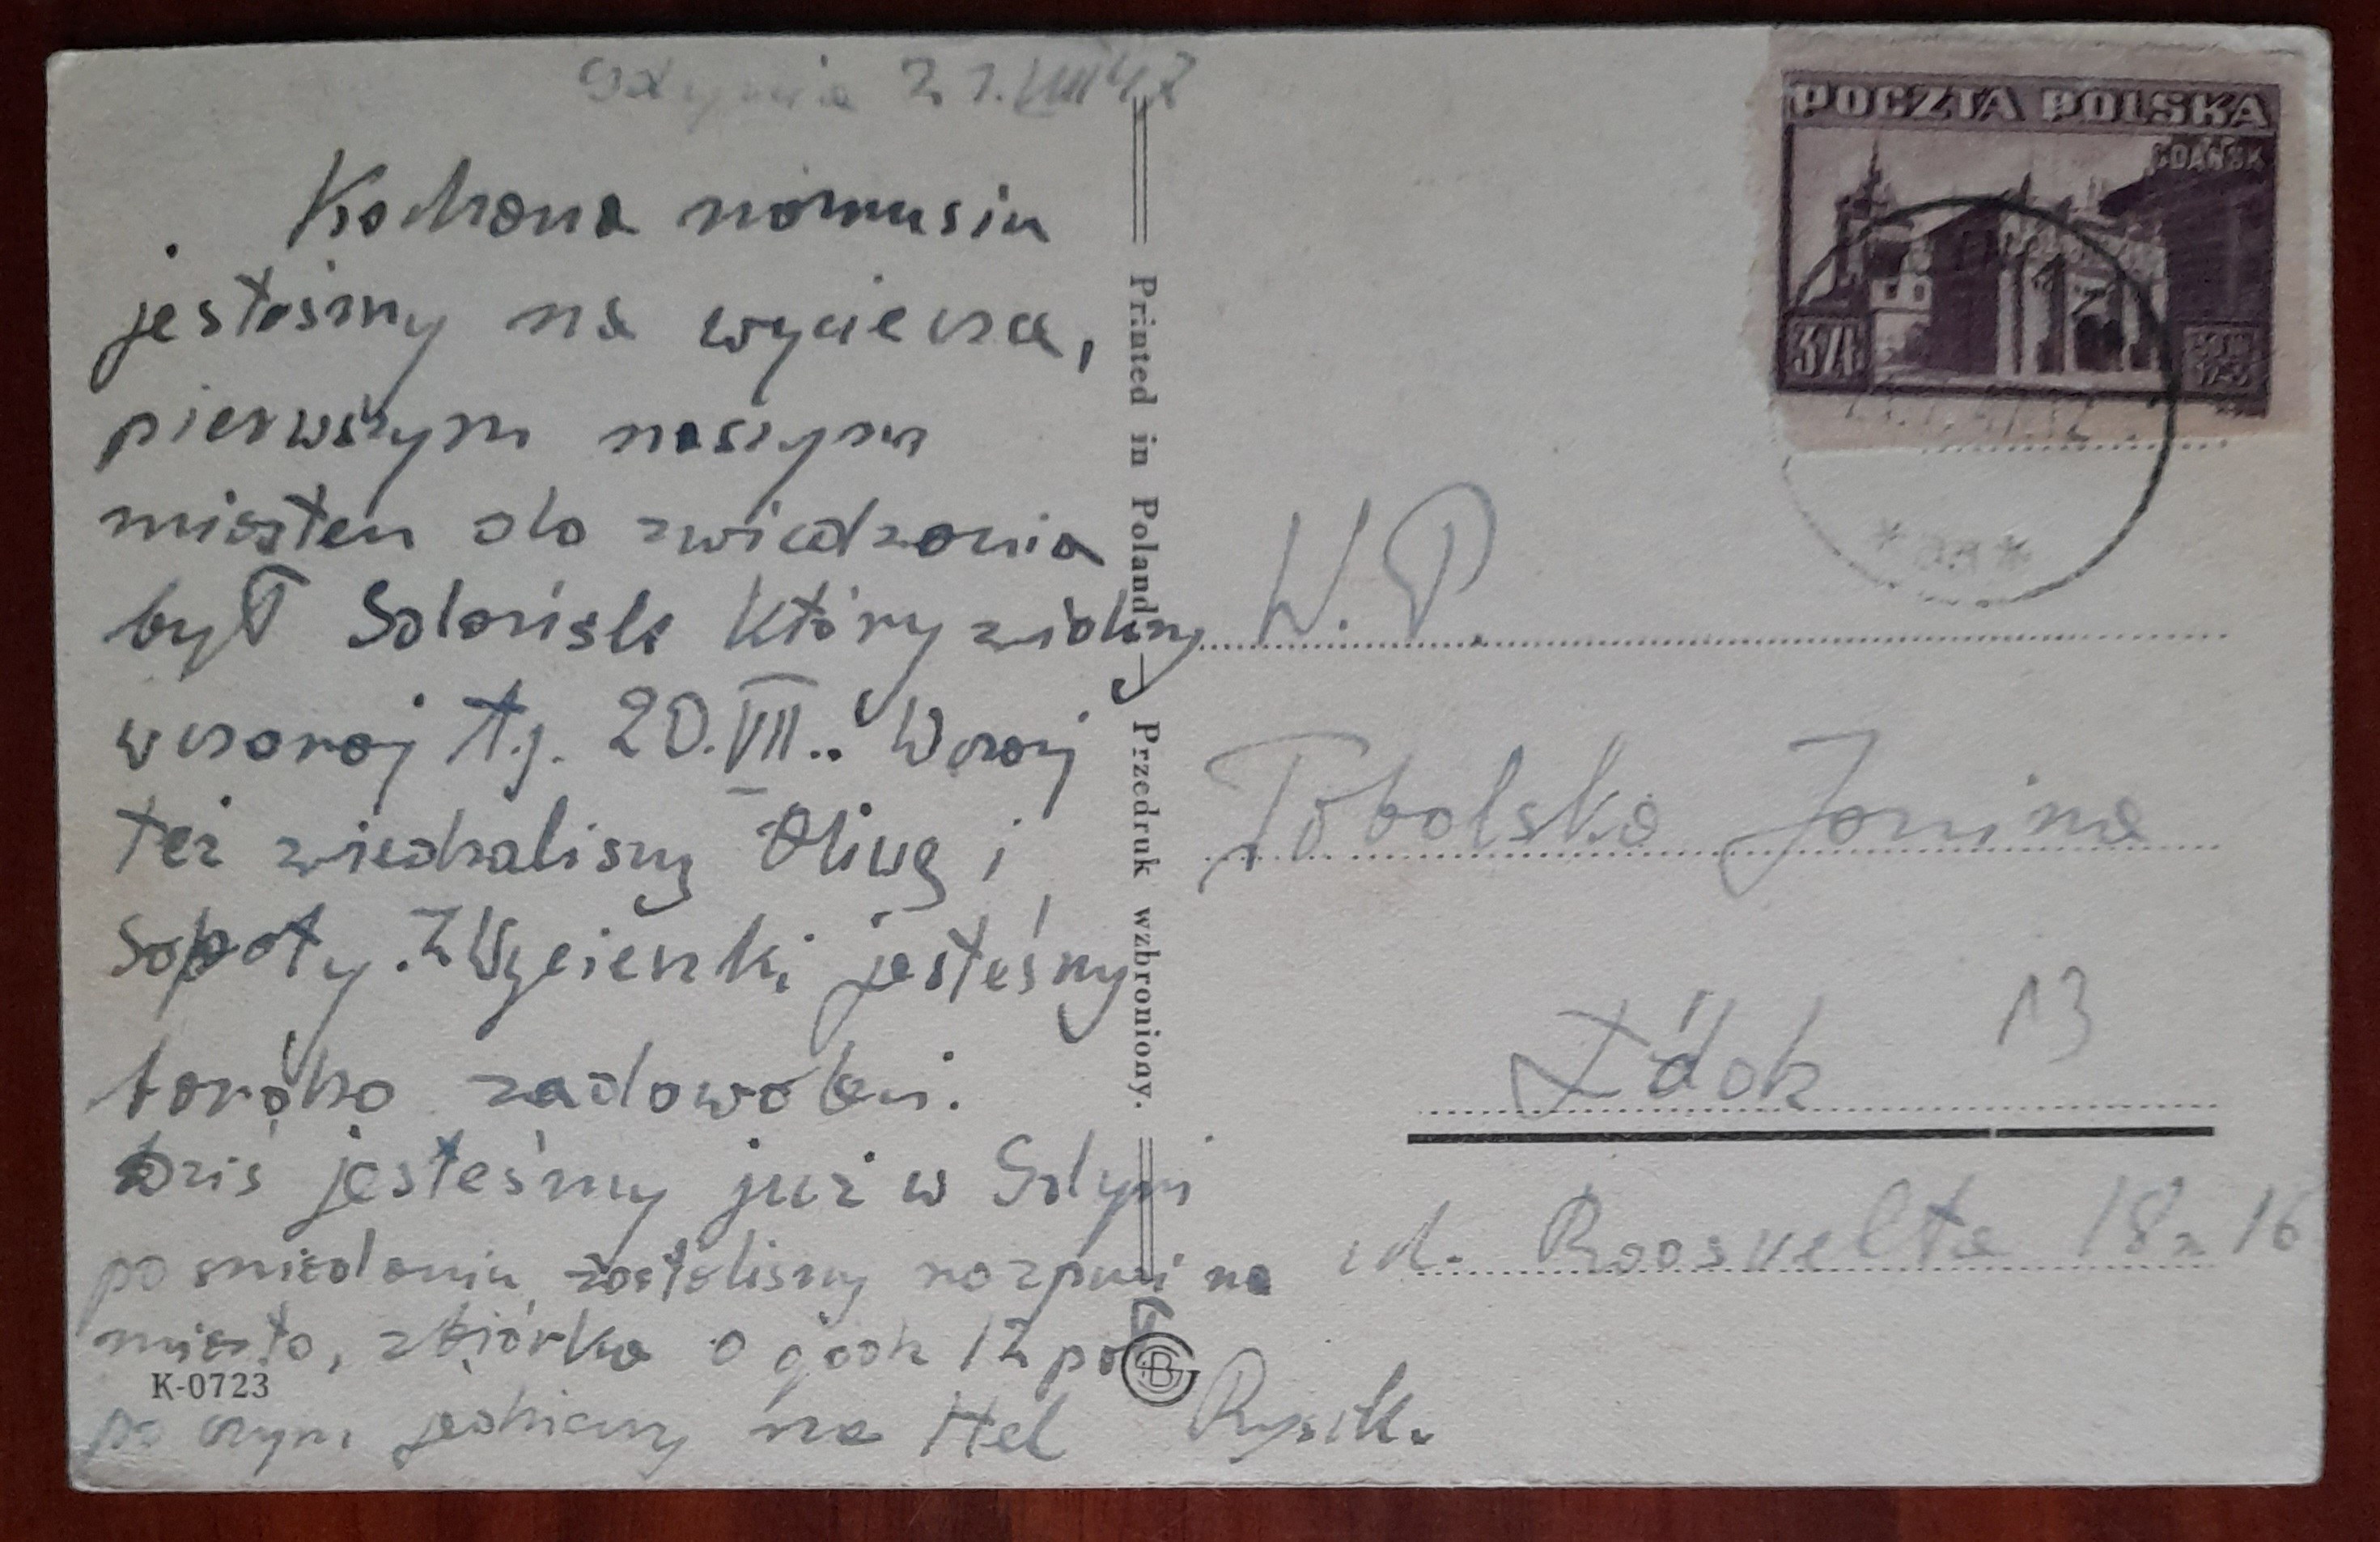 Gdynia 21.VII 47
Kochana mamusiu
jesteśmy na wycieczce,
pierwszym naszym
miastem do zwiedzania
był Gdańsk który
wczoraj t.j. 20.VII.. Wczoraj
też zwiedzaliśmy Oliwę i
Sopoty. Z Wycieczki jesteśmy
bardzo zadowoleni.
Dziś jesteśmy już w Gdyni
po śniadaniu zostaliśmy na
miasto, zbiórka o godz 12
po czym jedziemy na Hel
Rysiek.
K-0723
Printed in Poland — Przedruk wzbroniony.
POCZTA POLSKA
GDAŃSK
3 Zł
W. P.
Tobolska Janina
Łódź 13
ul. Roosvelta 18 m 16